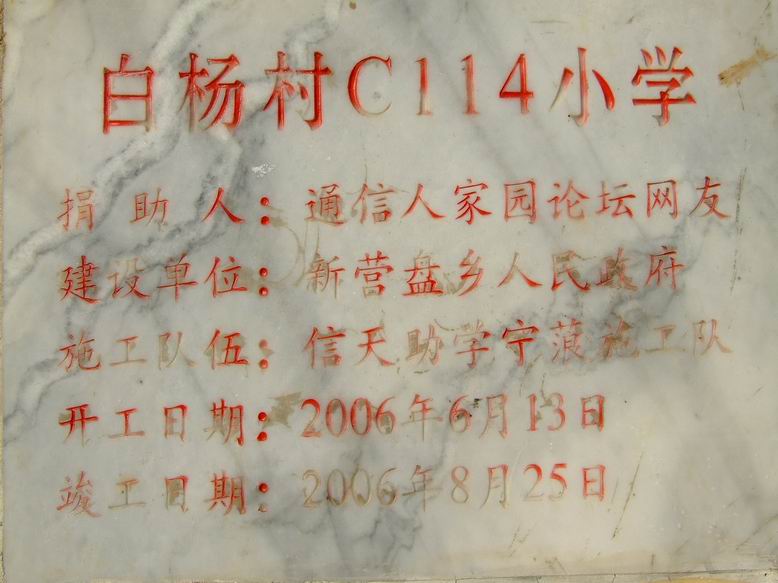 白杨村C114小学
捐助人：通信人家园论坛网友
建设单位：新营盘乡人民政府
施工队伍：信天助学宁蒗施工队
开工日期：2006年6月13日
竣工日期：2006年8月25日